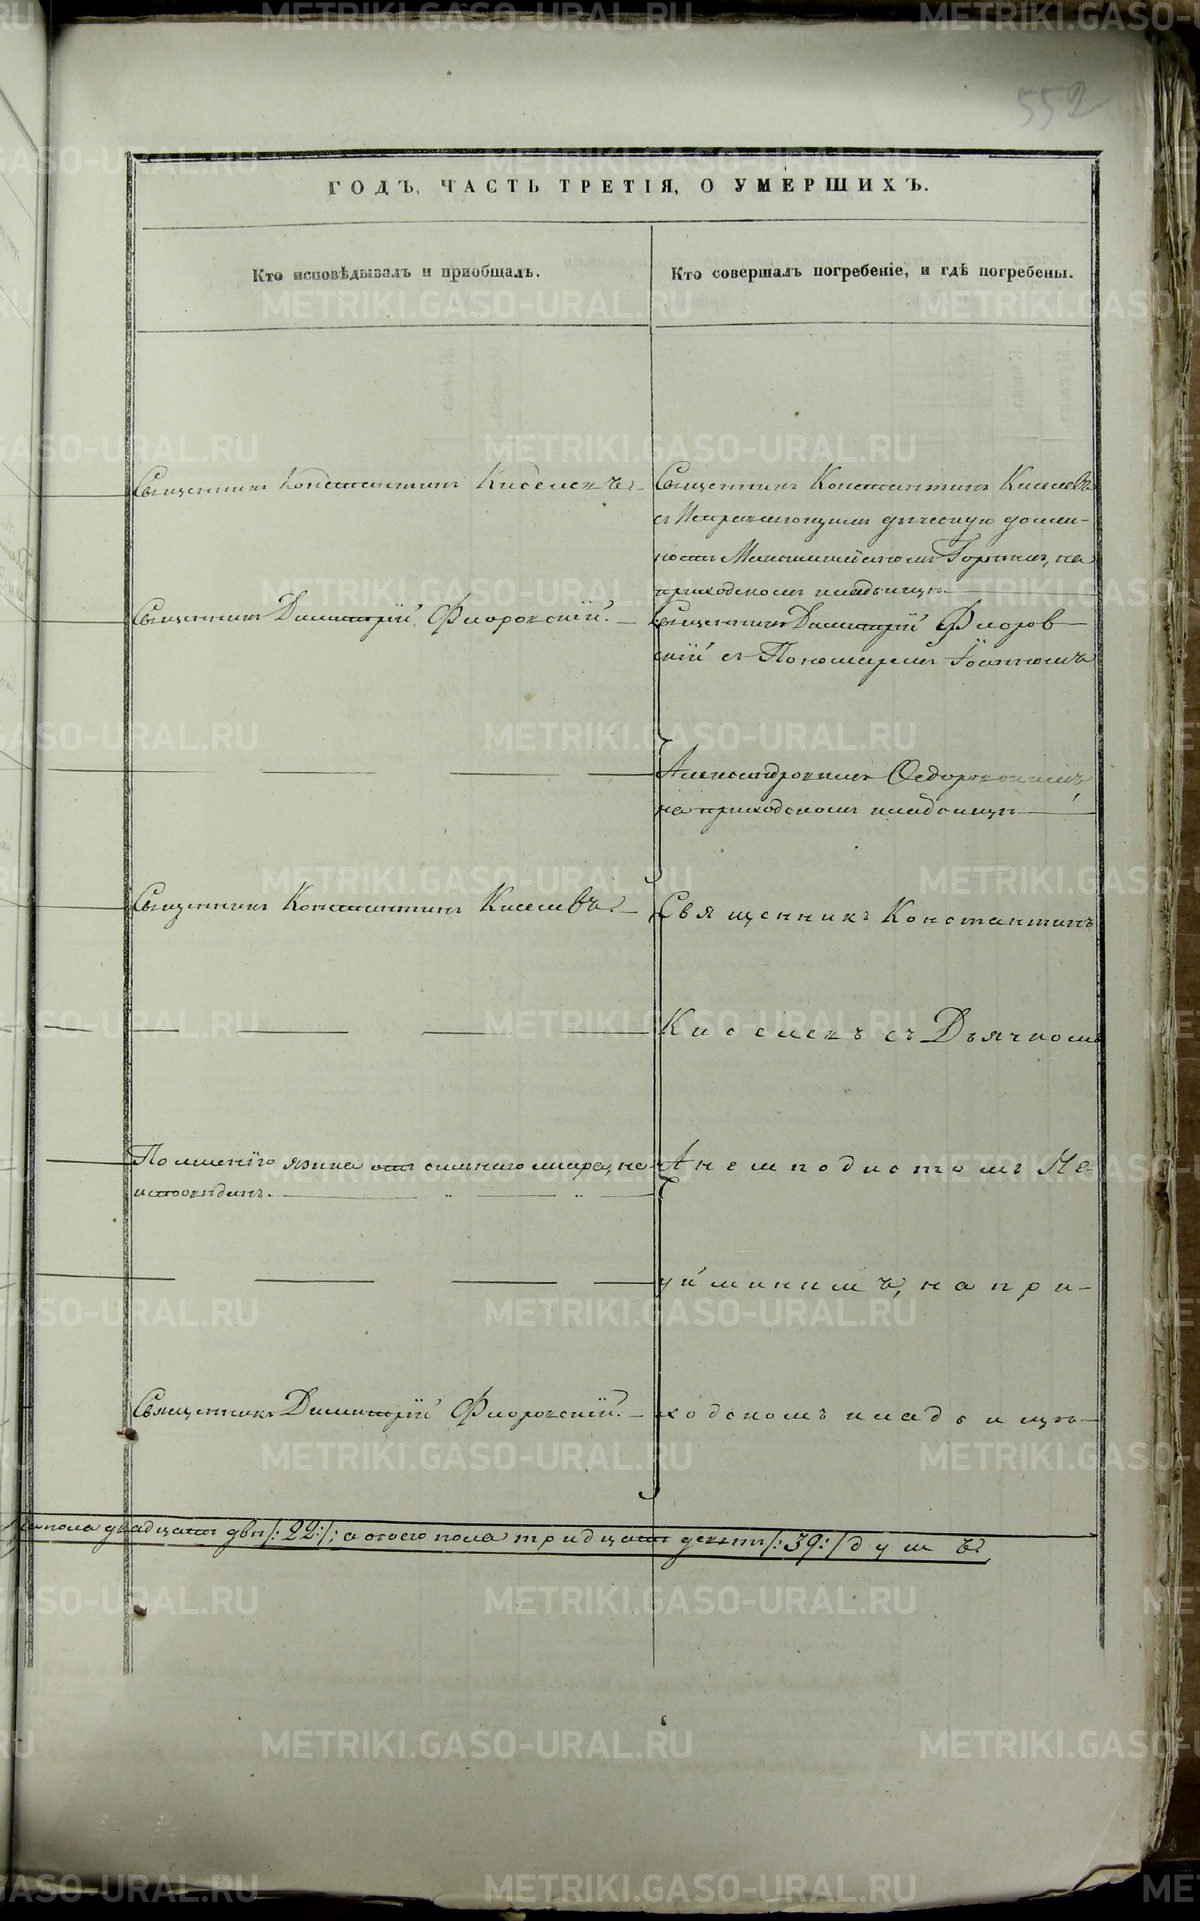 552
ГОДЪ, ЧАСТЬ ТРЕТІЯ, О УМЕРШИХЪ.
Кто исповѣдывалъ и пріобщалъ.
Кто совершалъ погребеніе, и гдѣ погребены.
Священникъ Константинъ Киселевъ.
Священникъ Константинъ Киселевъ
съ Исправляющимъ дьяческую долж-
ность на
приходскомъ кладбищѣ
Священникъ Димитрій Флоровскій.
Священникъ Димитрій Флоров
скій съ Пономаремъ Іоанномъ
Александровымъ Ѳедоровскимъ,
на приходскомъ кладбищѣ
Священникъ Константинъ Киселевъ.
Священникъ Константинъ
Киселевъ съ Дьячкомъ
По лишенію языка отъ сильнаго не
исповѣданъ.
Анемподистомъ Не-
уйминымъ, на при-
Священникъ Димитрій Флоровскій.
ходскомъ кладбищѣ
пола двадцать двѣ /:22:/; а обоего пола тридцать девять /:39:/ душъ.
METRIKI.GASO-URAL.RU